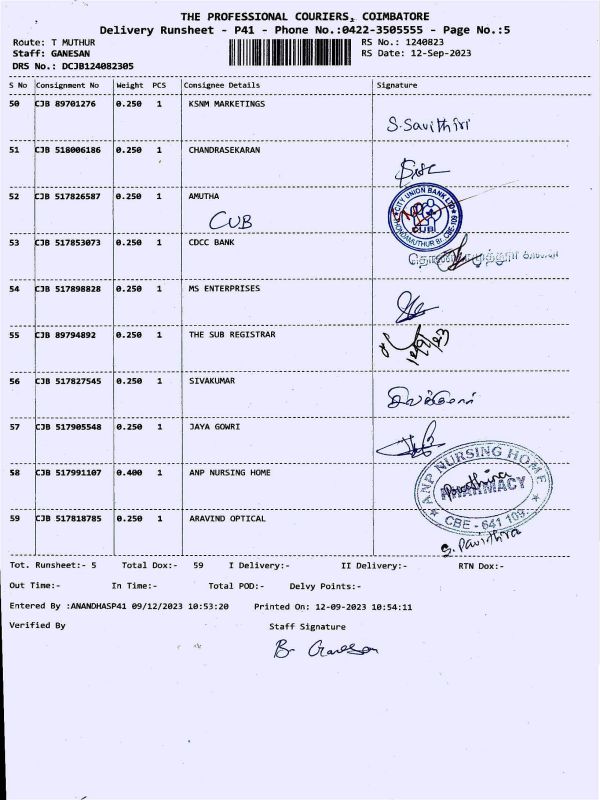 THE PROFESSIONAL COURIERS, COIMBATORE
Delivery Runsheet - P41 - Phone No.:0422-3505555 - Page No.:5
Route: T MUTHUR RS No.: 1240823
Staff: GANESAN RS Date: 12-Sep-2023
DRS No.: DCJB124082305
S No Consignment No Weight PCS Consignee Details Signature
50 CJB 89701276 0.250 1 KSNM MARKETINGS
S.Savithiri
51 CJB 518006186 0.250 1 CHANDRASEKARAN
52 CJB 517826587 0.250 1 AMUTHA
CUB
CITY UNION BANK LTD
CUB
CBE-109
53 CJB 517853073 0.250 1 CDCC BANK
54 CJB 517898828 0.250 1 MS ENTERPRISES
55 CJB 89794892 0.250 1 THE SUB REGISTRAR
12/9/23
56 CJB 517827545 0.250 1 SIVAKUMAR
57 CJB 517905548 0.250 1 JAYA GOWRI
58 CJB 517991107 0.400 1 ANP NURSING HOME
ANP NURSING HOME
PHARMACY
CBE - 641 109.
59 CJB 517818785 0.250 1 ARAVIND OPTICAL
S. Pavithra
Tot. Runsheet:- 5 Total Dox:- 59 I Delivery:- II Delivery:- RTN Dox:-
Out Time:- In Time:- Total POD:- Delvy Points:-
Entered By :ANANDHASP41 09/12/2023 10:53:20 Printed On: 12-09-2023 10:54:11
Verified By Staff Signature
B. Ganesan